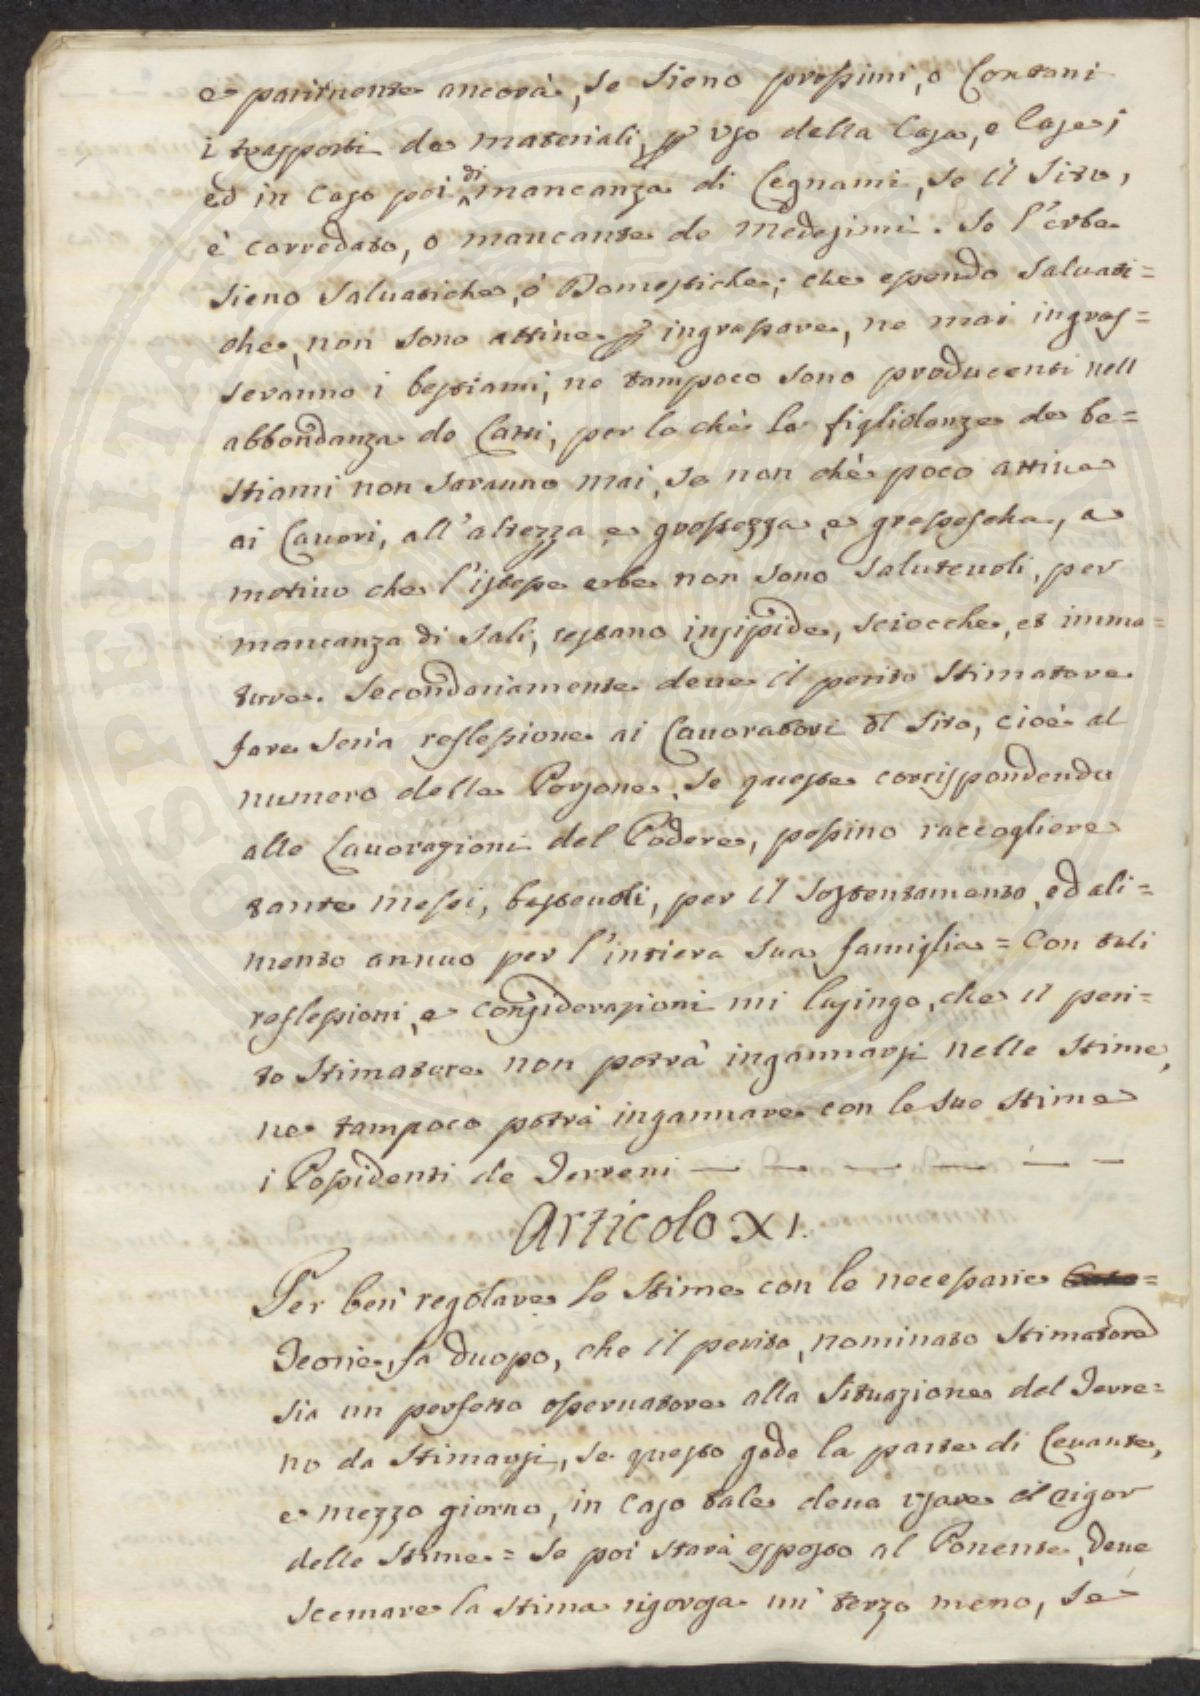 e parimente ancorà, se sieno prossimi, o Lontani
i trasporti de materiali, p uso della Casa, e Case;
ed in caso poi di mancanza di Legnami, se il Sito,
è corredato, o mancante de medesimi. Se l'erbe
sieno saluatiche, ò Domestiche; che essendo saluati=
che, non sono attine p ingrassare, ne mai ingras=
seranno i bestiami, ne tampoco sono producenti nell
abbondanza de Latti, per lo chè le figliolanze de be=
stiami non saranno mai, se non chè poco attiue
ai Lauori, all'altezza e grossezza e grassescha, a
motiuo che l'istesse erbe non sono saluteuoli, per
mancanza di sali, restano insipide, sciocche, et imma=
ture. Secondariamente deue il perito Stimatore
fare seria reflessione ai Lauoratori del Sito, cioè al
numero delle Persone, se queste corrispondendo
alle Lauorazioni del Podere, possino raccogliere
tante messi, basteuoli, per il sostentamento, ed ali=
mento annuo per l'intiera sua famiglia = Con tali
reflessioni, e considerazioni mi lusingo, che il peri=
to Stimatore non potrà ingannarsi nelle Stime,
ne tampoco potrà ingannare con le sue Stime
i Possidenti de Terreni — — — — — —
Articolo XI.
Per ben regolare le Stime con le necessarie
Teorie, fa duopo, che il perito, nominato Stimatore
sia un perfetto osseruatore alla Situazione del Terre=
no da Stimarsi, se questo gode la parte di Leuante,
e mezzo giorno, in caso tale deue usare il rigor
delle Stime = Se poi starà esposto al Ponente, deue
scemare la stima rigorosa un terzo meno, se